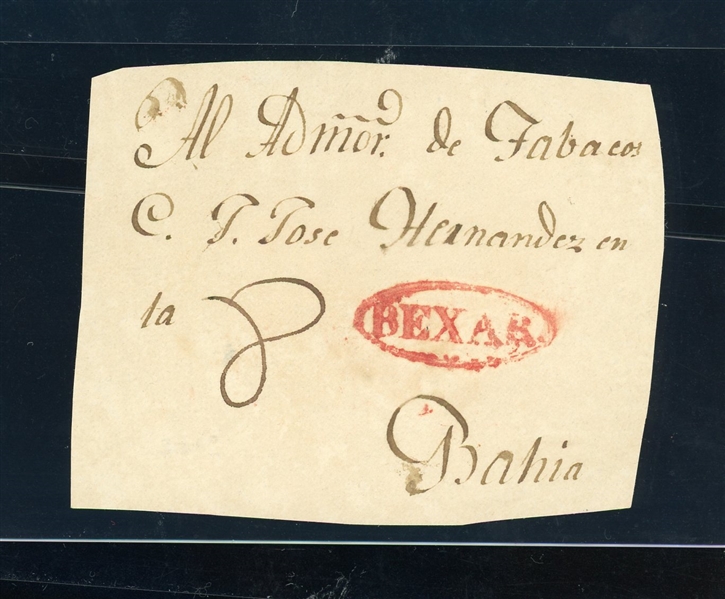 Al Admõr. de Tabacos
C. J. Jose Hernandez en
la BEXAR.
Bahia